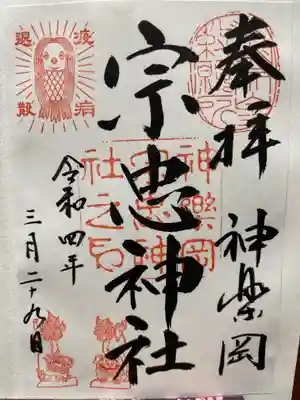 奉拝
神楽岡
宗忠神社
令和四年
三月二十九日
疫病
退散
神樂岡
宗忠神
社之印